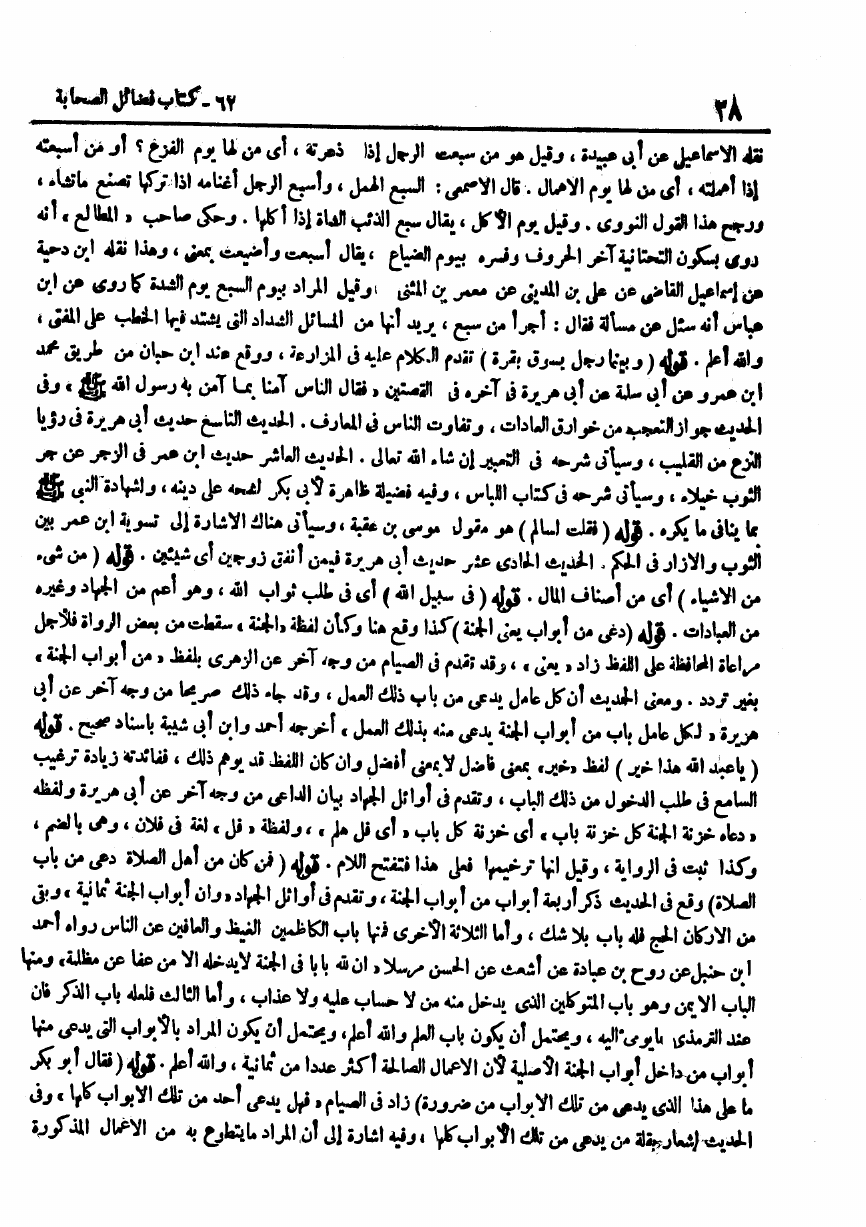 ٣٨
٦٢ - كتاب فضائل الصحابة
نقله الاسماعيلى عن أبى عبيدة ، وقيل هو من سبعت الرجل إذا ذعرته ، أى من لها يوم الفزع ؟ أو من أسبعته
إذا أهملته ، أى من لها يوم الاهمال . قال الاصمعى : السبع الهمل ، وأسبع الرجل أغنامه اذا تركها تصنع ماتشاء ،
ورجح هذا القول النووى . وقيل يوم الأكل ، يقال سبع الذئب الشاة إذا أكلها . وحكى صاحب « المطالع » أنه
روى بسكون التحتانية آخر الحروف وفسره بيوم الضياع ، يقال أسبعت وأضيعت بمعنى ، وهذا نقله ابن دحية
عن إسماعيل القاضى عن على بن المدينى عن معمر بن المثنى ، وقيل المراد بيوم السبع يوم الشدة كما روى عن ابن
عباس أنه سئل عن مسألة فقال : أجرأ من سبع ، يريد أنها من المسائل الشداد التى يشتد فيها الخطب على المفتى ،
والله أعلم . قوله ( وبينما رجل يسوق بقرة ) تقدم الكلام عليه فى المزارعة ، ووقع عند ابن حبان من طريق محمد
ابن عمرو عن أبى سلمة عن أبى هريرة فى آخره فى القصتين « فقال الناس آمنا بما آمن به رسول الله ﷺ » وفى
الحديث جواز التعجب من خوارق العادات ، وتفاوت الناس فى المعارف . الحديث التاسع حديث أبى هريرة فى رؤيا
النزع من القليب ، وسيأتى شرحه فى التعبير إن شاء الله تعالى . الحديث العاشر حديث ابن عمر فى الزجر عن جر
الثوب خيلاء ، وسيأتى شرحه فى كتاب اللباس ، وفيه فضيلة ظاهرة لأبى بكر لشحه على دينه ، ولشهادة النبى ﷺ
بما ينافى ما يكره . قوله ( فقلت لسالم ) هو مقول موسى بن عقبة ، وسيأتى هناك الاشارة إلى تسوية ابن عمر بين
الثوب والازار فى الحكم . الحديث الحادى عشر حديث أبى هريرة فيمن أنفق زوجين أى شيئين . قوله ( من شىء
من الاشياء ) أى من أصناف المال . قوله ( فى سبيل الله ) أى فى طلب ثواب الله ، وهو أعم من الجهاد وغيره
من العبادات . قوله ( دعى من أبواب يعنى الجنة ) كذا وقع هنا وكأن لفظة « الجنة » سقطت من بعض الرواة فلأجل
مراعاة المحافظة على اللفظ زاد « يعنى » ، وقد تقدم فى الصيام من وجه آخر عن الزهرى بلفظ « من أبواب الجنة »
بغير تردد . ومعنى الحديث أن كل عامل يدعى من باب ذلك العمل ، وقد جاء ذلك صريحا من وجه آخر عن أبى
هريرة « لكل عامل باب من أبواب الجنة يدعى منه بذلك العمل » أخرجه أحمد وابن أبى شيبة باسناد صحيح . قوله
( ياعبد الله هذا خير ) لفظ « خير » بمعنى فاضل لا بمعنى أفضل وان كان اللفظ قد يوهم ذلك ، ففائدته زيادة ترغيب
السامع فى طلب الدخول من ذلك الباب ، وتقدم فى أوائل الجهاد بيان الداعى من وجه آخر عن أبى هريرة ولفظه
« دعاه خزنة الجنة كل خزنة باب » أى خزنة كل باب « أى فل هلم » ، ولفظة « فل » لغة فى فلان ، وهى بالضم ،
وكذا ثبت فى الرواية ، وقيل انها ترخيمها فعلى هذا فتفتح اللام . قوله ( فمن كان من أهل الصلاة دعى من باب
الصلاة ) وقع فى الحديث ذكر أربعة أبواب من أبواب الجنة ، وتقدم فى أوائل الجهاد « وان أبواب الجنة ثمانية » وبقى
من الاركان الحج فله باب بلا شك ، وأما الثلاثة الأخرى فمنها باب الكاظمين الغيظ والعافين عن الناس رواه أحمد
ابن حنبل عن روح بن عبادة عن أشعث عن الحسن مرسلا « ان لله بابا فى الجنة لايدخله الا من عفا عن مظلمة » ومنها
الباب الايمن وهو باب المتوكلين الذى يدخل منه من لا حساب عليه ولا عذاب ، وأما الثالث فلعله باب الذكر فان
عند الترمذى مايومئ اليه ، ويحتمل أن يكون باب العلم والله أعلم ، ويحتمل أن يكون المراد بالأبواب التى يدعى منها
أبواب من داخل أبواب الجنة الأصلية لأن الاعمال الصالحة أكثر عددا من ثمانية ، والله أعلم . قوله ( فقال أبو بكر
ما على هذا الذى يدعى من تلك الابواب من ضرورة ) زاد فى الصيام « فهل يدعى أحد من تلك الابواب كلها » وفى
الحديث إشعار بقلة من يدعى من تلك الأبواب كلها ، وفيه اشارة إلى أن المراد مايتطوع به من الاعمال المذكورة